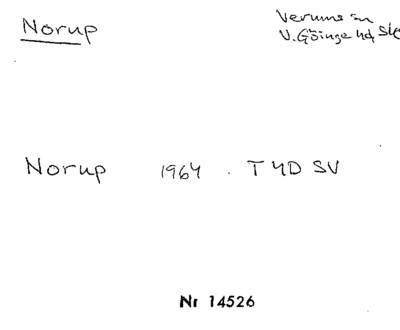 Norup
Verums sn
V. Göinge hd
Norup 1964. T4D SV
Nr 14526